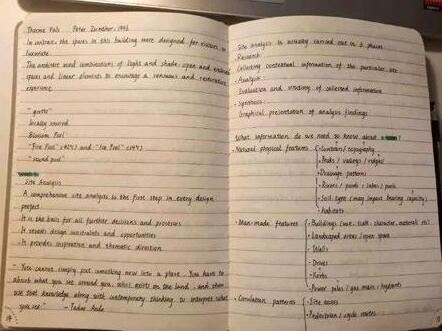 Therme Vals Peter Zumthor, 1996
In contrast, the spaces in this building were designed for visitors to
luxuriate
The architect used combinations of light and shade, open and enclosed
spaces and linear elements to encourage a sensuous and restorative
experience.
"grotto"
locally sourced
Blossom Pool
"Fire Pool" (42°) and "Ice Pool" (14°)
"sound pool"
Site Analysis
A comprehensive site analysis is the first step in every design
project
It is the basis for all further decisions and processes
It reveals design constraints and opportunities
It provides inspiration and thematic direction.
- "You cannot simply put something new into a place. You have to
absorb what you see around you, what exists on the land, and then
use that knowledge along with contemporary thinking to interpret what
you see." - Tadao Ando
Site analysis is usually carried out in 3 phases
• Research
Collecting contextual information of the particular site
• Analysis
Evaluation and of collected information
• Synthesis
Graphical presentation of analysis findings
What information do we need to know about
• Natural physical features
• Contours / topography
• Peaks / valleys / ridges
• Drainage patterns
• Rivers / ponds / lakes / pools
• Soil type (may impact bearing capacity)
• habitats
• Man-made features
• Buildings (use, scale, character, materials etc)
• Landscaped areas / open space
• Walls
• Drives
• Kerbs
• Power poles / gas mains / hydrants
• Circulation patterns
• Site access
• Pedestrian / cycle routes